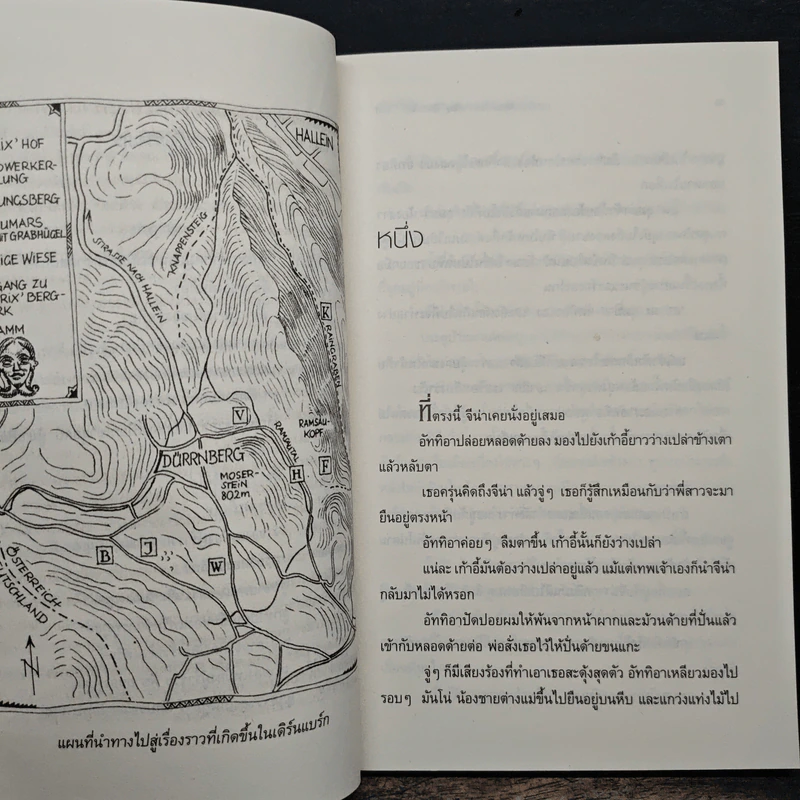 RIX' HOF
DWERKER-
LUNG
UNGSBERG
UMARS,
NT GRABHÜGEL
IGE WIESE
GANG ZU
RIX' BERG-
RK
AMM
HALLEIN
KNAPPENSTEIG
STRASSE NACH HALLEIN
K
RAINGRABEN
V
RAMSAU-
KOPF
RAMSAUTAL
DÜRRNBERG
MOSER-
STEIN
802m
H
F
B
J
W
ÖSTERREICH
DEUTSCHLAND
N
แผนที่นำทางไปสู่เรื่องราวที่เกิดขึ้นในเดิร์นแบร์ก
หนึ่ง
ที่ตรงนี้ จีน่าเคยนั่งอยู่เสมอ
อัททิอาปล่อยหลอดด้ายลง มองไปยังเก้าอี้ยาวว่างเปล่าข้างเตา
แล้วหลับตา
เธอครุ่นคิดถึงจีน่า แล้วจู่ๆ เธอก็รู้สึกเหมือนกับว่าพี่สาวจะมา
ยืนอยู่ตรงหน้า
อัททิอาค่อยๆ ลืมตาขึ้น เก้าอี้นั้นก็ยังว่างเปล่า
แน่ละ เก้าอี้มันต้องว่างเปล่าอยู่แล้ว แม้แต่เทพเจ้าเองก็นำจีน่า
กลับมาไม่ได้หรอก
อัททิอาปัดปอยผมให้พ้นจากหน้าผากและม้วนด้ายที่ปั่นแล้ว
เข้ากับหลอดด้ายต่อ พ่อสั่งเธอไว้ให้ปั่นด้ายขนแกะ
จู่ๆ ก็มีเสียงร้องที่ทำเอาเธอสะดุ้งสุดตัว อัททิอาเหลียวมองไป
รอบๆ มันโน่ น้องชายต่างแม่ขึ้นไปยืนอยู่บนหีบ และแกว่งแท่งไม้ไป